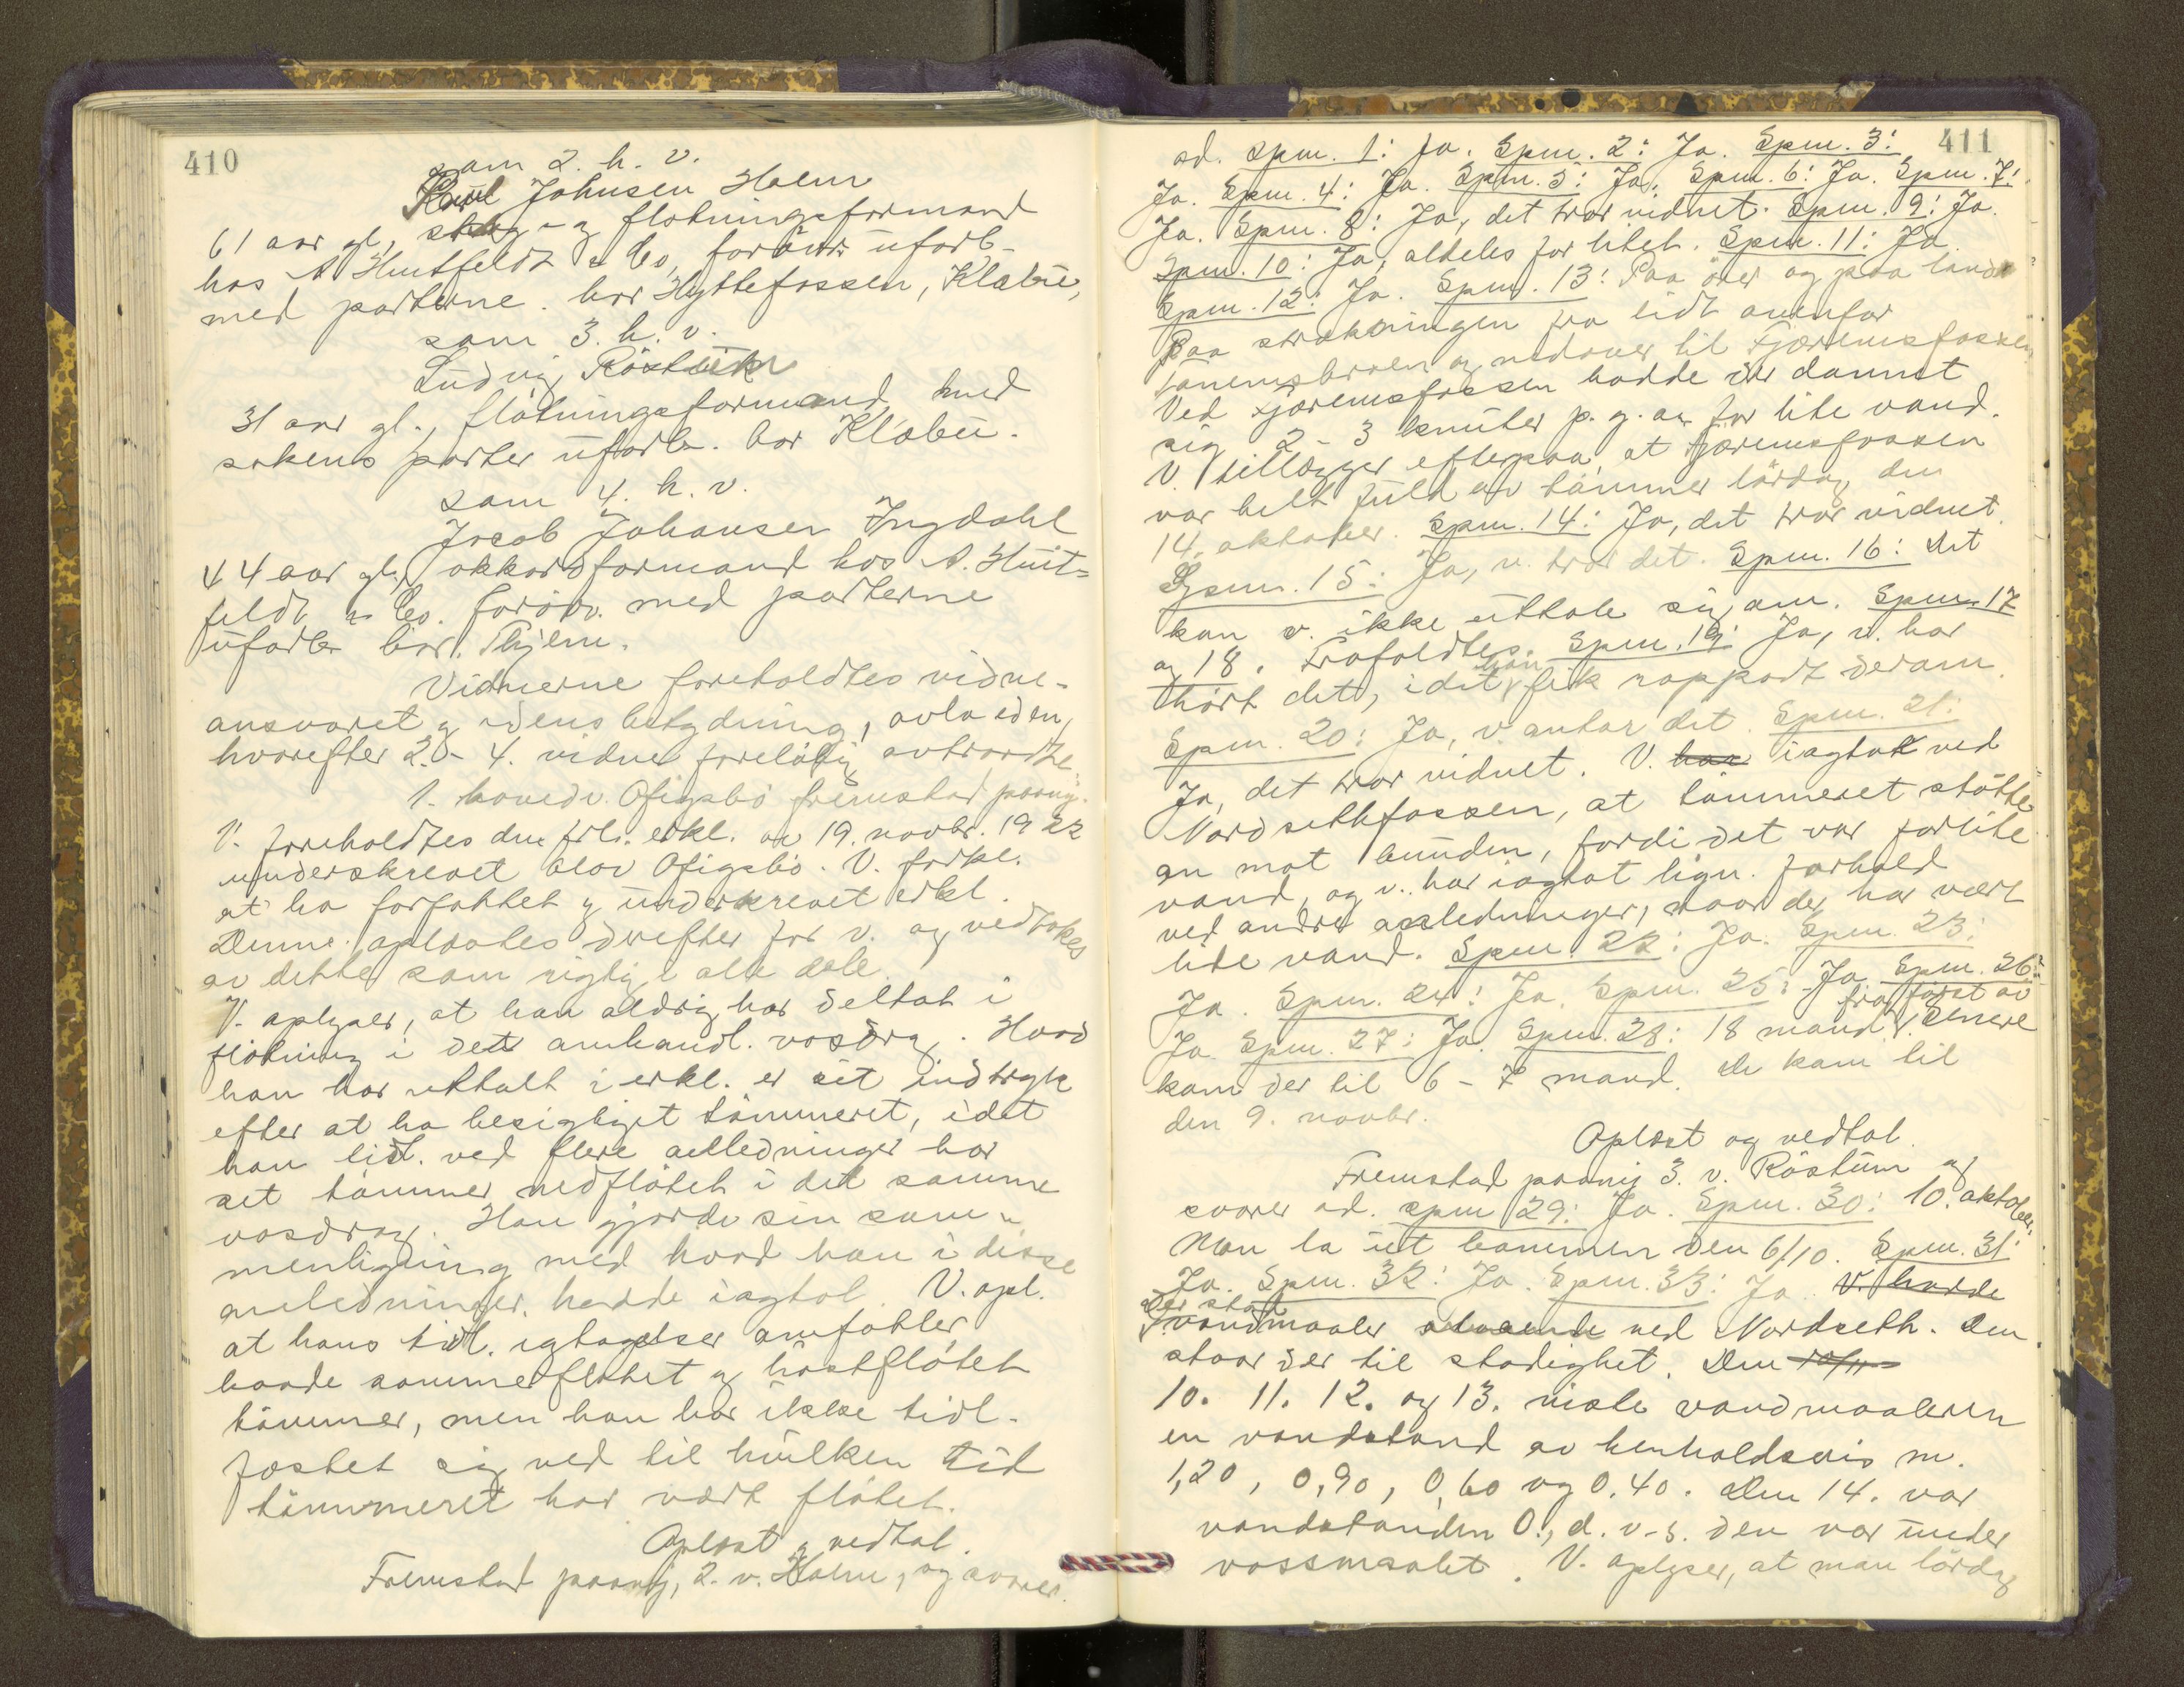 410
som 2. h. v.
Karl Johnsen Holm
61 aar gl., skog- og flötningsformand
hos A Huitfeldt & Co, forövr uforb.
med parterne. bor Hyttefossen, Klæbu,
som 3. h. v.
Ludvig Röstum
31 aar gl., flötningsformand med
sakens parter uforb. bor Klæbu.
som 4. h. v.
Jacob Johansen Ingdahl
44 aar gl., akkordformand hos A. Huit-
feldt & Co. forövr. med parterne
uforb. bor. Thjem.
Vidnerne foreholdtes vidne-
ansvaret og edens betydning, avla eden,
hvorefter 2. - 4. vidne foreløbig avtraadte.
1. hovedv. Ofigsbö fremstod paany.
V. foreholdtes den frl. erkl. av 19. novbr. 1922
underskrevet Olav Ofigsbö. V. forkl.
at ha forfattet og underskrevet erkl.
Denne oplæstes derefter for v. og vedtokes
av dette som rigtig i alle dele.
V. oplyser, at han aldrig har deltat i
flötning i det omhandl. vasdrag. Hvad
han har uttalt i erkl. er sit indtryk
efter at ha besigtiget tömmeret, idet
han tidl. ved flere anledninger har
set tömmer nedflötet i det samme
vasdrag. Han gjorde sin sam-
menligning med hvad han i disse
anledninger hadde iagtat. V. opl.
at hans tidl. igtagelser omfatter
baade sommerflötet og höstflötet
tömmer, men han har ikke tidl.
fæstet sig ved til hvilken tid
tömmeret har vært flötet.
Oplæst og vedtat.
Fremstod paany, 2. v. Holm, og svarer
411
ad. spm. 1: Ja. Spm. 2: Ja. Spm. 3:
Ja. Spm. 4: Ja. Spm. 5: Ja. Spm. 6: Ja. Spm. 7:
Ja. Spm. 8: Ja, det tror vidnet. Spm. 9: Ja.
Spm. 10: Ja, aldeles for litet. Spm. 11: Ja.
Spm. 12: Ja. Spm. 13: Paa örer og paa land
Paa strækningen fra lidt ovenfor
Tanemsbroen og nedover til Fjæremsfossen
Ved Fjæremsfossen hadde der dannet
sig 2-3 knuter p. g. av for lite vand.
V. tillægger efterpaa, at Fjæremsfossen
var helt fuld av tömmer lördag den
14. oktober. Spm. 14: Ja, det tror vidnet.
Spm. 15: Ja, v. tror det. Spm. 16: Det
kan v. ikke uttale sig om. Spm. 17
og 18. Frafaldtes. Spm. 19: Ja, v. har
hört det, idet han fik rapport derom.
Spm. 20: Ja, v. antar det. Spm. 21:
Ja, det tror vidnet. V. har iagtat ved
Nordsethfossen, at tömmeret stötte
an mot bunden, fordi det var forlite
vand, og v. har iagtat lign. forhold
ved andre anledninger, naar der har vært
lite vand. Spm. 22: Ja. Spm. 23:
Ja. Spm. 24: Ja. Spm. 25: Ja. Spm. 26:
Ja. Spm. 27: Ja. Spm. 28: 18 mand fra först av. Senere
kom der til 6-7 mand. De kom til
den 9. novbr.
Oplæst og vedtat.
Fremstod paany 3. v. Röstum og
svarer ad. spm 29: Ja. Spm. 30: 10. oktober.
Man la ut bommen den 6/10. Spm. 31:
Ja. Spm. 32: Ja. Spm. 33: Ja. V. havde
Der stod vandmaaler staaende ved Nordseth. Den
staar der til stadighet. Den 10/11
10. 11. 12. og 13. viste vandmaaleren
en vandstand av henholdsvis m.
1,20, 0,90, 0,60 og 0,40. Den 14. var
vandstanden 0, d. v. s. den var under
vassmaalet. V. oplyser, at man lördag